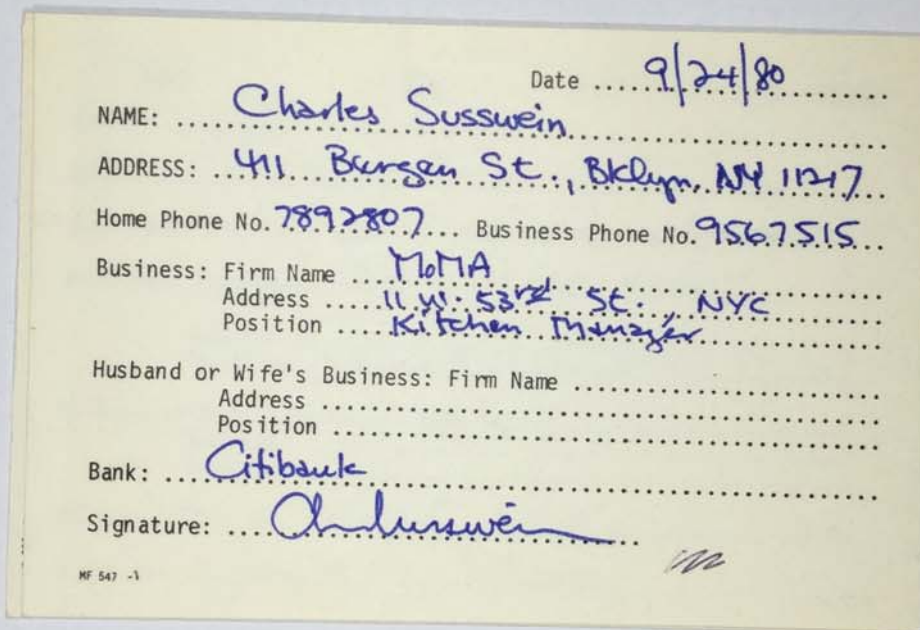 Date ..... 9/24/80
NAME: ... Charles Susswein
ADDRESS: .. 411 Bergen St., Bklyn, NY 11217
Home Phone No. 7892807 ... Business Phone No. 9567515
Business: Firm Name ... MoMA
Address ..... 11 W. 53rd St., NYC
Position .... Kitchen Manager
Husband or Wife's Business: Firm Name
Address
Position
Bank: .... Citibank
Signature: ....
MF 547 -1